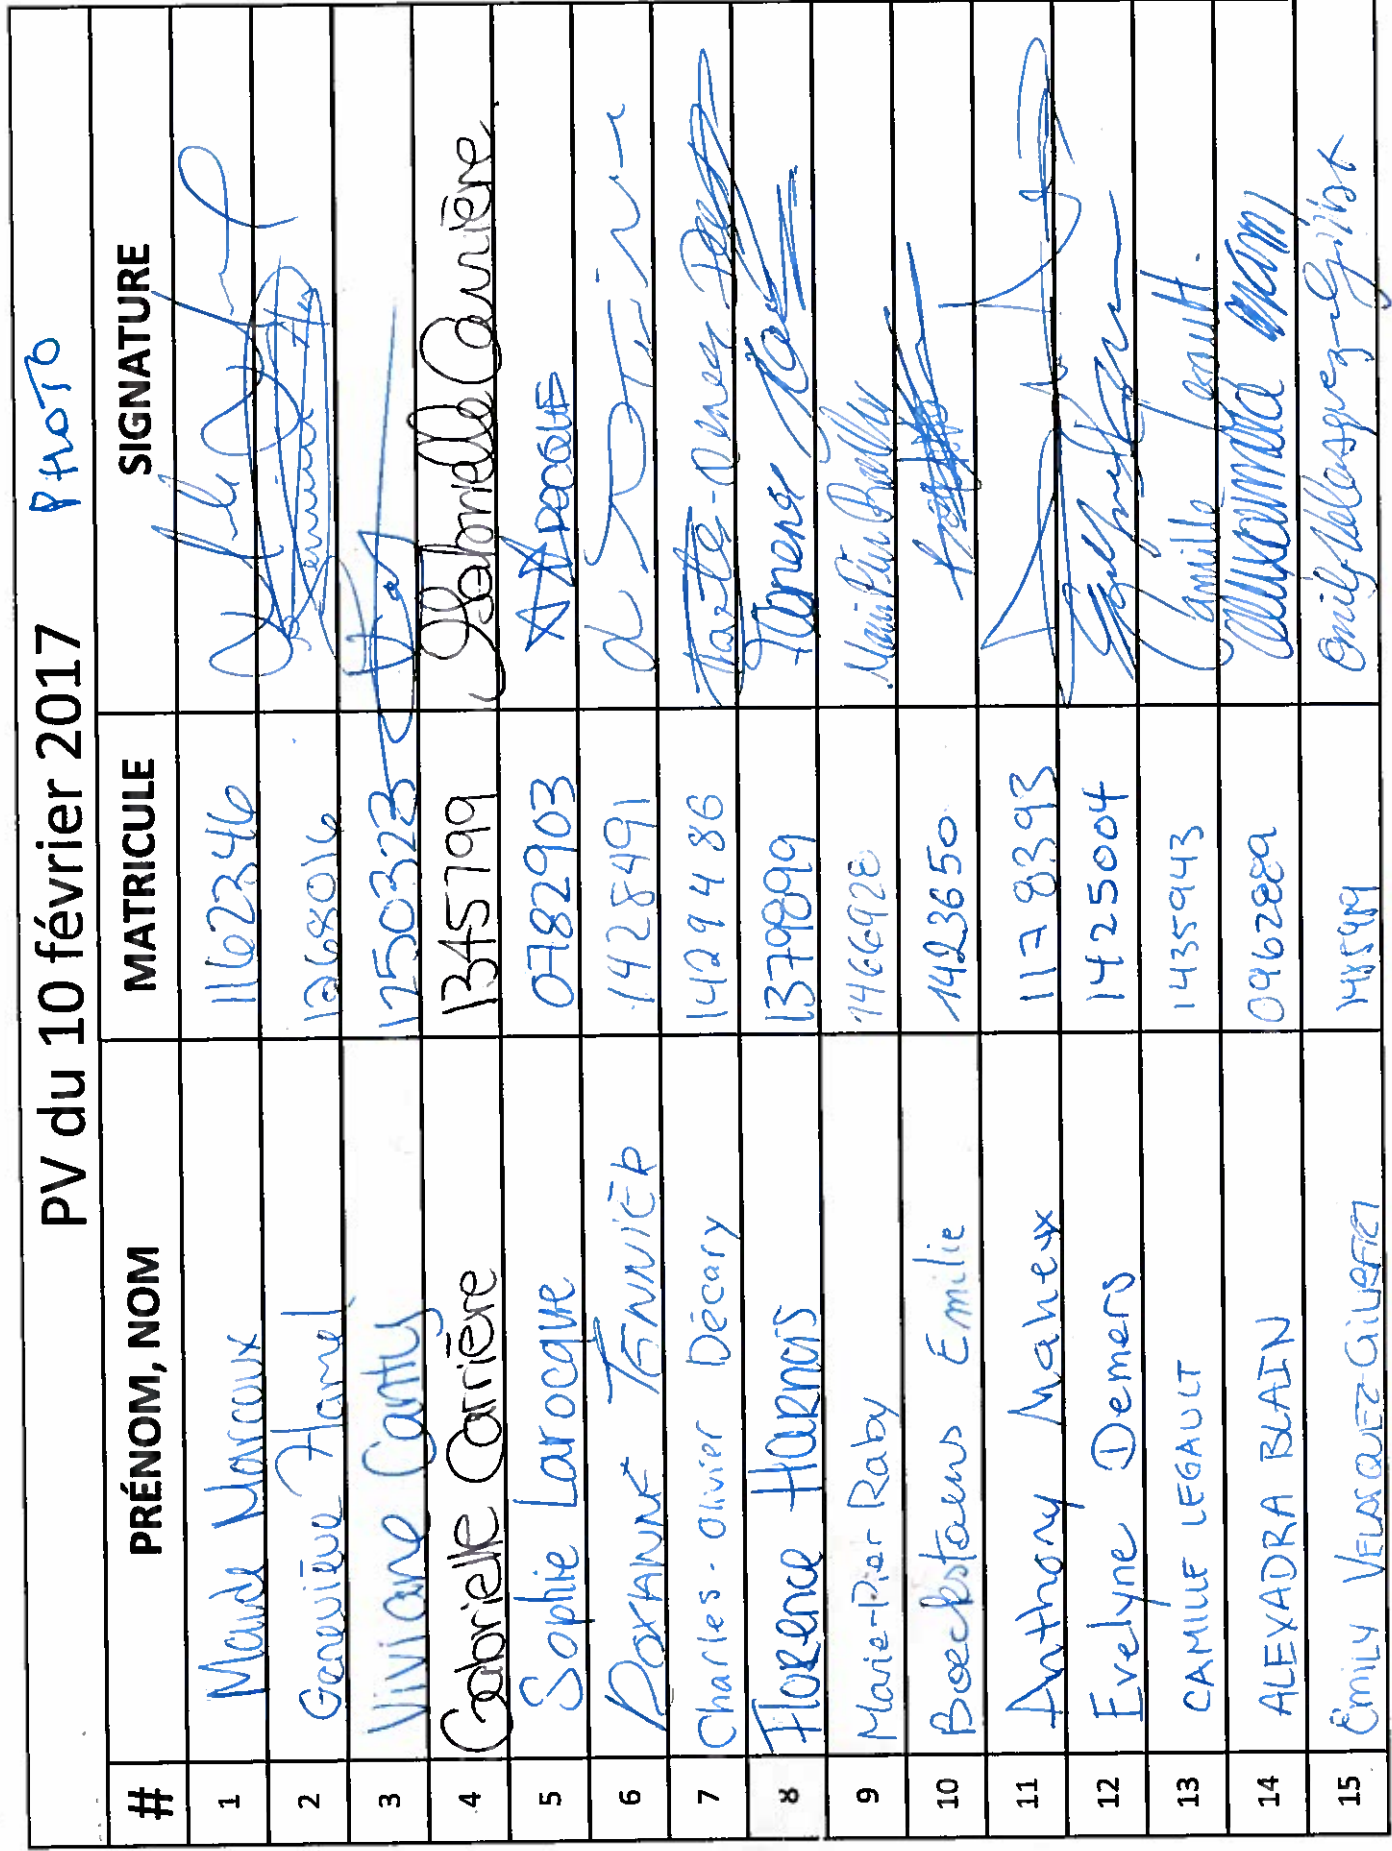 PV du 10 février 2017 PHOTO
# PRÉNOM, NOM MATRICULE SIGNATURE
1 Maude Marcoux 1162346
2 Geneviève Hamel 1268016
3 Viviane Cantly 1250323
4 Gabrielle Carrière 1345799 Gabrielle Carrière
5 Sophie Larocque 0782903
6 ROXANNE TENNIER 1428491
7 Charles-Olivier Décary 1429486
8 Florence HARNOIS 1379899
9 Marie-Pier Raby 1466928 Marie Pier Raby
10 Boeckstaens Emilie 1423650
11 Anthony Maheux 1178393
12 Evelyne Demers 1425004
13 CAMILLE LEGAULT 1435943 Camille Legault.
14 ALEXADRA BLAIN 0962889
15 Emily VELASQUEZ-GILBERT Emily Velasquez-Gilbert